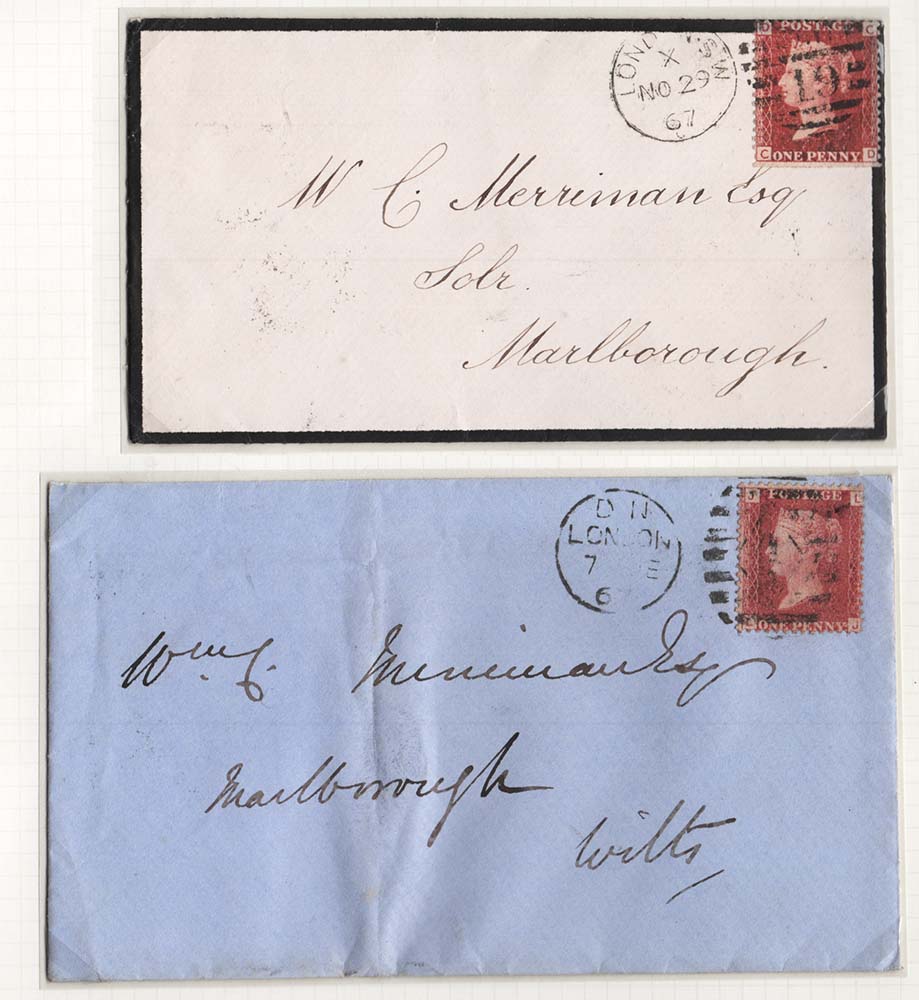 LONDON.SW
X
NO 29
67
D C
POSTAGE
19
C ONE PENNY D
W C. Merriman Esq
Solr.
Marlborough.
D 11
LONDON
7 E
67
J POSTAGE L
ONE PENNY J
Wm C. Merriman Esq
Marlborough
Wilts